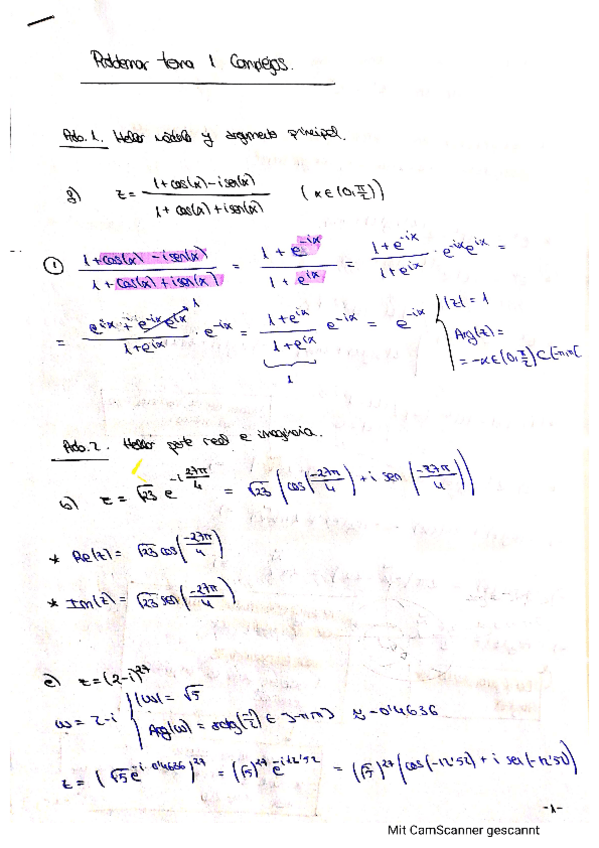 Problemas tema 1 Complejos.
Prob. 1. Hallar módulo y argumento principal.
g) z = (1+cos(x)-isen(x))/(1+cos(x)+isen(x)) (x∈(0,π/2))
① (1+cos(x)-isen(x))/(1+cos(x)+isen(x)) = (1+e^{-ix})/(1+e^{ix}) = (1+e^{-ix})/(1+e^{ix}) · e^{-ix}e^{ix} =
= (e^{ix}+e^{-ix}e^{ix})/(1+e^{ix}) · e^{-ix} = (1+e^{ix})/(1+e^{ix}) e^{-ix} = e^{-ix} { |z| = 1
1
1
Arg(z) =
= -x∈(0,π/2)⊂[-π,π[
Prob. 2. Hallar parte real e imaginaria.
b) z = √23 e^{-i 27π/4} = √23 (cos(-27π/4) + i sen(-27π/4))
* Re(z) = √23 cos(-27π/4)
* Im(z) = √23 sen(-27π/4)
e) z = (2-i)^{27}
ω = 2-i { |ω| = √5
Arg(ω) = arctg(-1/2) ∈ ]-π,π] ≈ -0'4636
z = (√5 e^{-i·0'4636})^{27} = (√5)^{27} e^{-i12'52} = (√5)^{27} (cos(-12'52) + i sen(-12'52))
-1-
Mit CamScanner gescannt